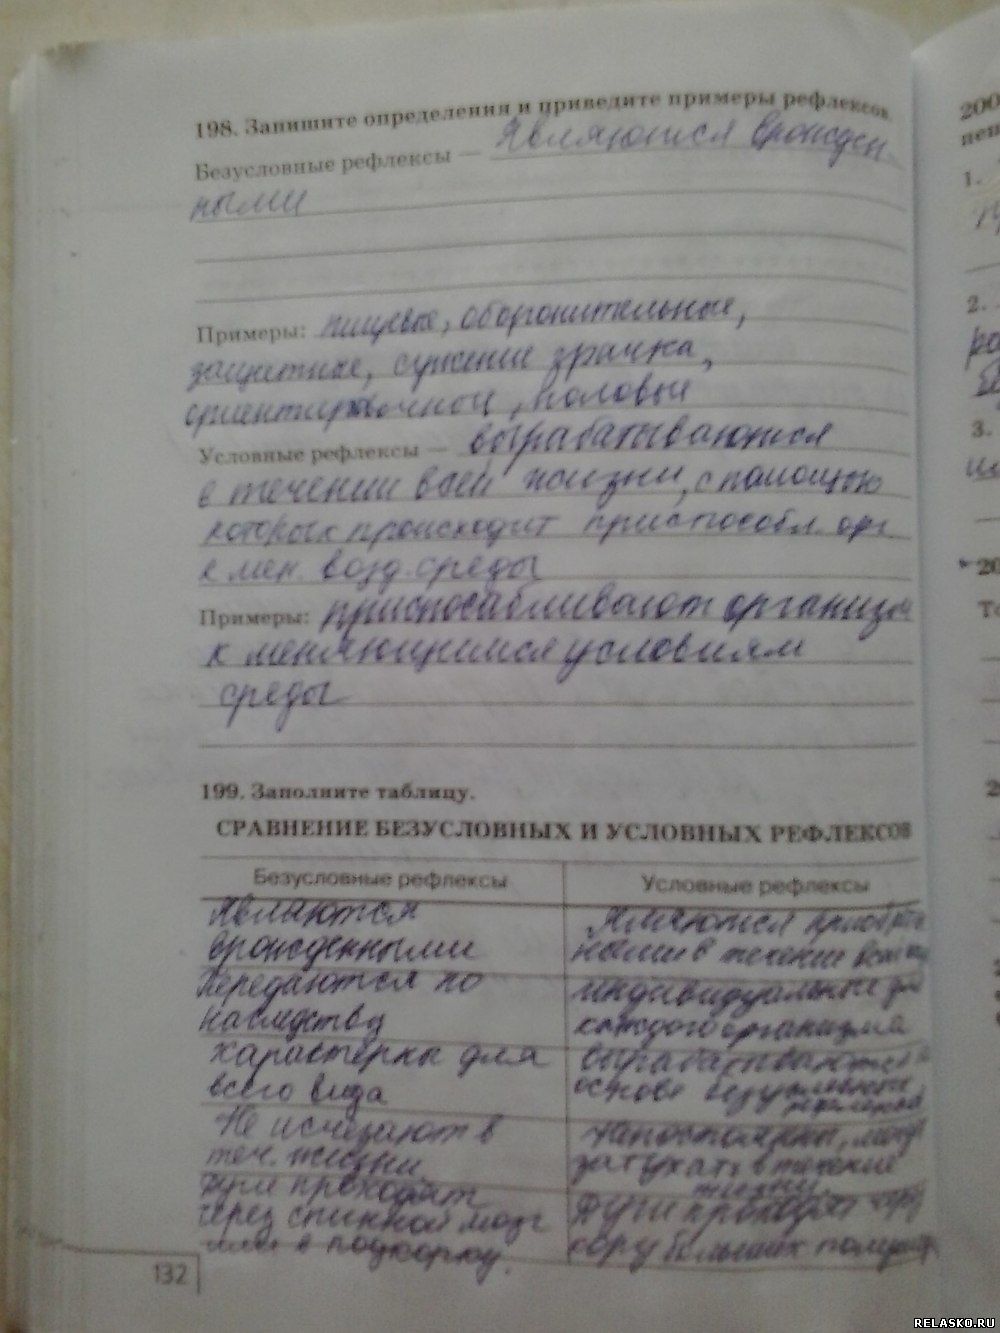 198. Запишите определения и приведите примеры рефлексов.
Безусловные рефлексы — Являются врожден
ными
Примеры: пищевые, оборонительные,
защитные, сужение зрачка,
ориентировочные, половые
Условные рефлексы — вырабатываются
в течении всей жизни, с помощью
которых происходит приспособл. орг.
к мен. возд. среды
Примеры: приспосабливают организм
к меняющимся условиям
среды
199. Заполните таблицу.
СРАВНЕНИЕ БЕЗУСЛОВНЫХ И УСЛОВНЫХ РЕФЛЕКСОВ
Безусловные рефлексы
Условные рефлексы
Являются
врожденными
Являются
ными в течение
Передаются по
наследству
индивидуальные для
каждого организма
Характерны для
всего вида
вырабатываются
основе безусловных
рефлексов
Не исчезают в
теч. жизни
Непостоянны, могут
затухать в течение
жизни
Дуги проходят
через спинной мозг
или в подкорку.
Дуги проходят через
кору больших полушар
132
200
1.
2.
3.
RELASKO.RU